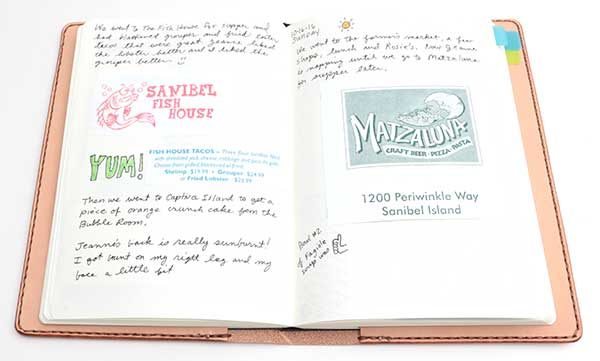 We went to The Fish House for supper and
had blackened grouper and fried lobster
tacos that were great. Jeanne liked
the lobster better and I liked the
grouper better.
SANIBEL
FISH
HOUSE
YUM!
FISH HOUSE TACOS – Three flour tortillas filled
with shredded jack cheese, cabbage and pico de gallo
Choose from grilled, blackened or fried
Shrimp $19.99 • Grouper $24.99
or Fried Lobster $25.99
Then we went to Captiva Island to get a
piece of orange crunch cake from the
Bubble Room.
Jeanne's back is really sunburnt!
I got burnt on my right leg and my
face a little bit
10-16-16
Sunday
We went to the farmer's market, a few
shops, lunch and Rosie's. Now Jeanne
is napping until we go to Matzaluna
for supper later.
MATZALUNA
CRAFT BEER · PIZZA · PASTA
1200 Periwinkle Way
Sanibel Island
#2
of Fragile